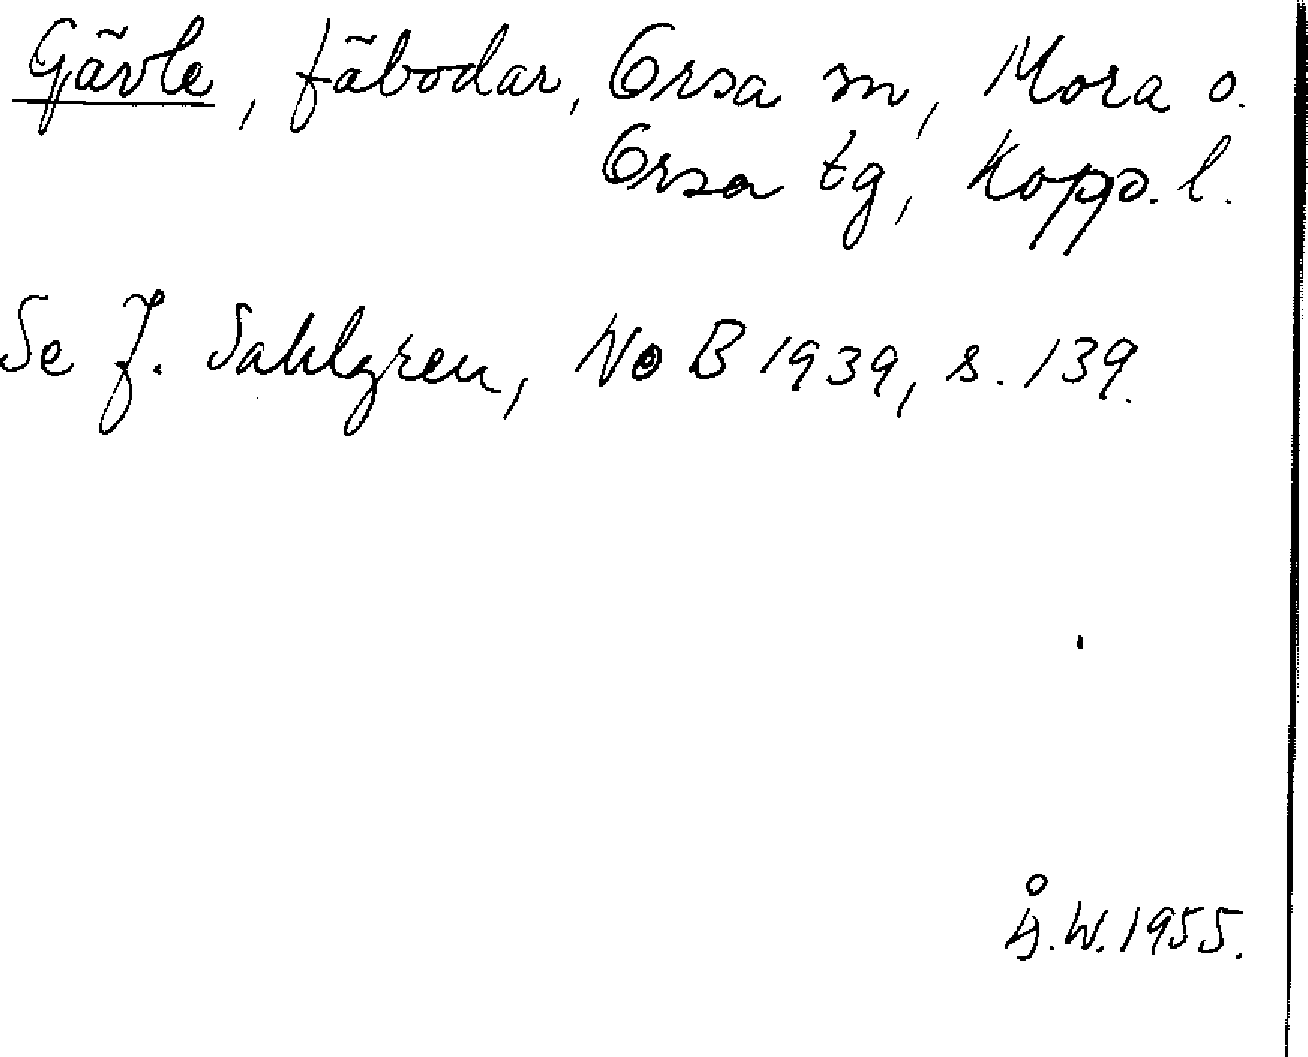 Gävle, fäbodar, Orsa sn, Mora o.
Orsa tg, Kopp. l.
Se J. Sahlgren, NoB 1939, s. 139.
Å.W. 1955.